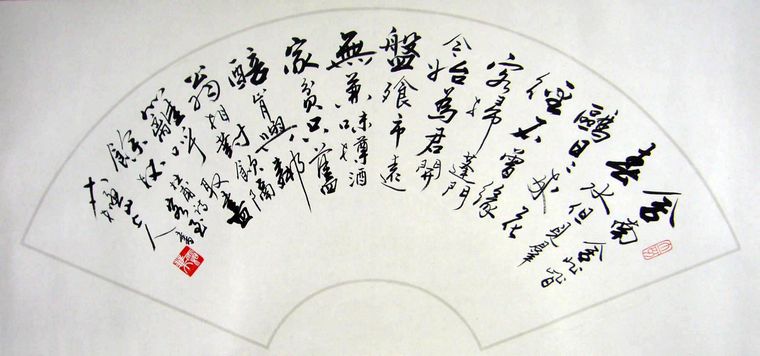 舍南舍北皆
春水但見群
鷗日日來花
徑不曾緣
客掃蓬門
今始為君開
盤飧市遠
無兼味樽酒
家貧只舊
醅肯與鄰
翁相對飲隔
籬呼取盡
餘杯
杜甫詩客至